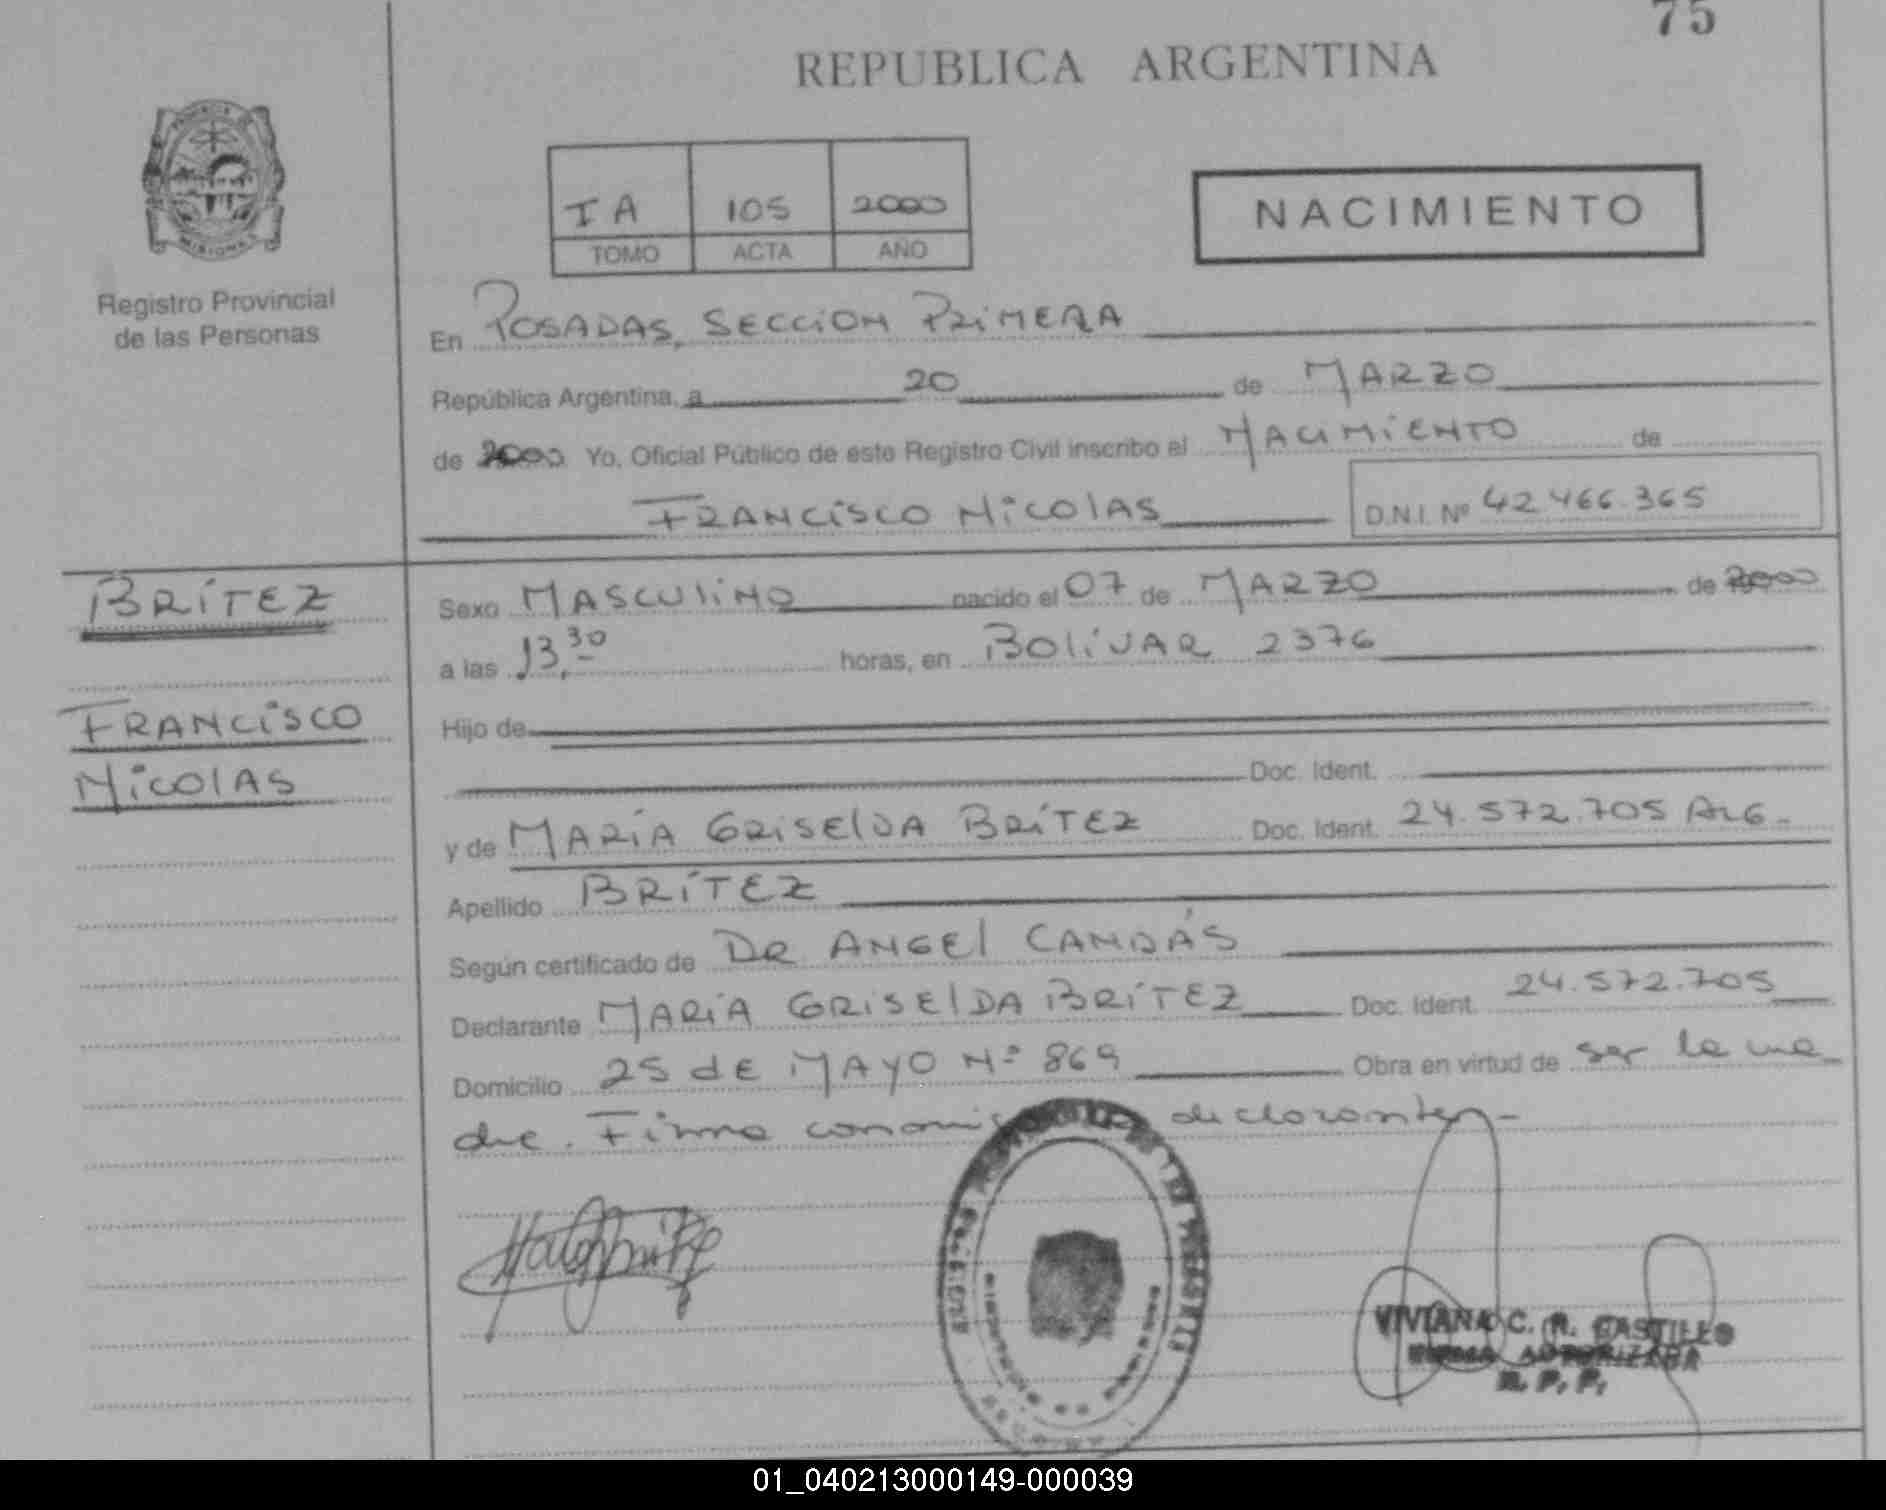 75
REPUBLICA ARGENTINA
PROVINCIA DE
MISIONES
Registro Provincial
de las Personas
I A 105 2000
TOMO ACTA AÑO
NACIMIENTO
En POSADAS, SECCION PRIMERA
República Argentina, a 20 de MARZO
de 2000 Yo, Oficial Público de este Registro Civil inscribo el NACIMIENTO de
FRANCISCO NICOLAS D.N.I. Nº 42.466.365
BRÍTEZ
FRANCISCO
NICOLAS
Sexo MASCULINO nacido el 07 de MARZO de 2000
a las 13,30 horas, en BOLIVAR 2376
Hijo de
Doc. Ident.
y de MARIA GRISELDA BRÍTEZ Doc. Ident. 24.572.705 ARG.
Apellido BRÍTEZ
Según certificado de DR ANGEL CANDÁS
Declarante MARIA GRISELDA BRÍTEZ Doc. Ident. 24.572.705
Domicilio 25 de MAYO Nº 869 Obra en virtud de ser la ma
dre. Firma conmigo declarante.-
VIVIANA C. R. CASTILLO
FIRMA AUTORIZADA
R. P. P.
01_040213000149-000039